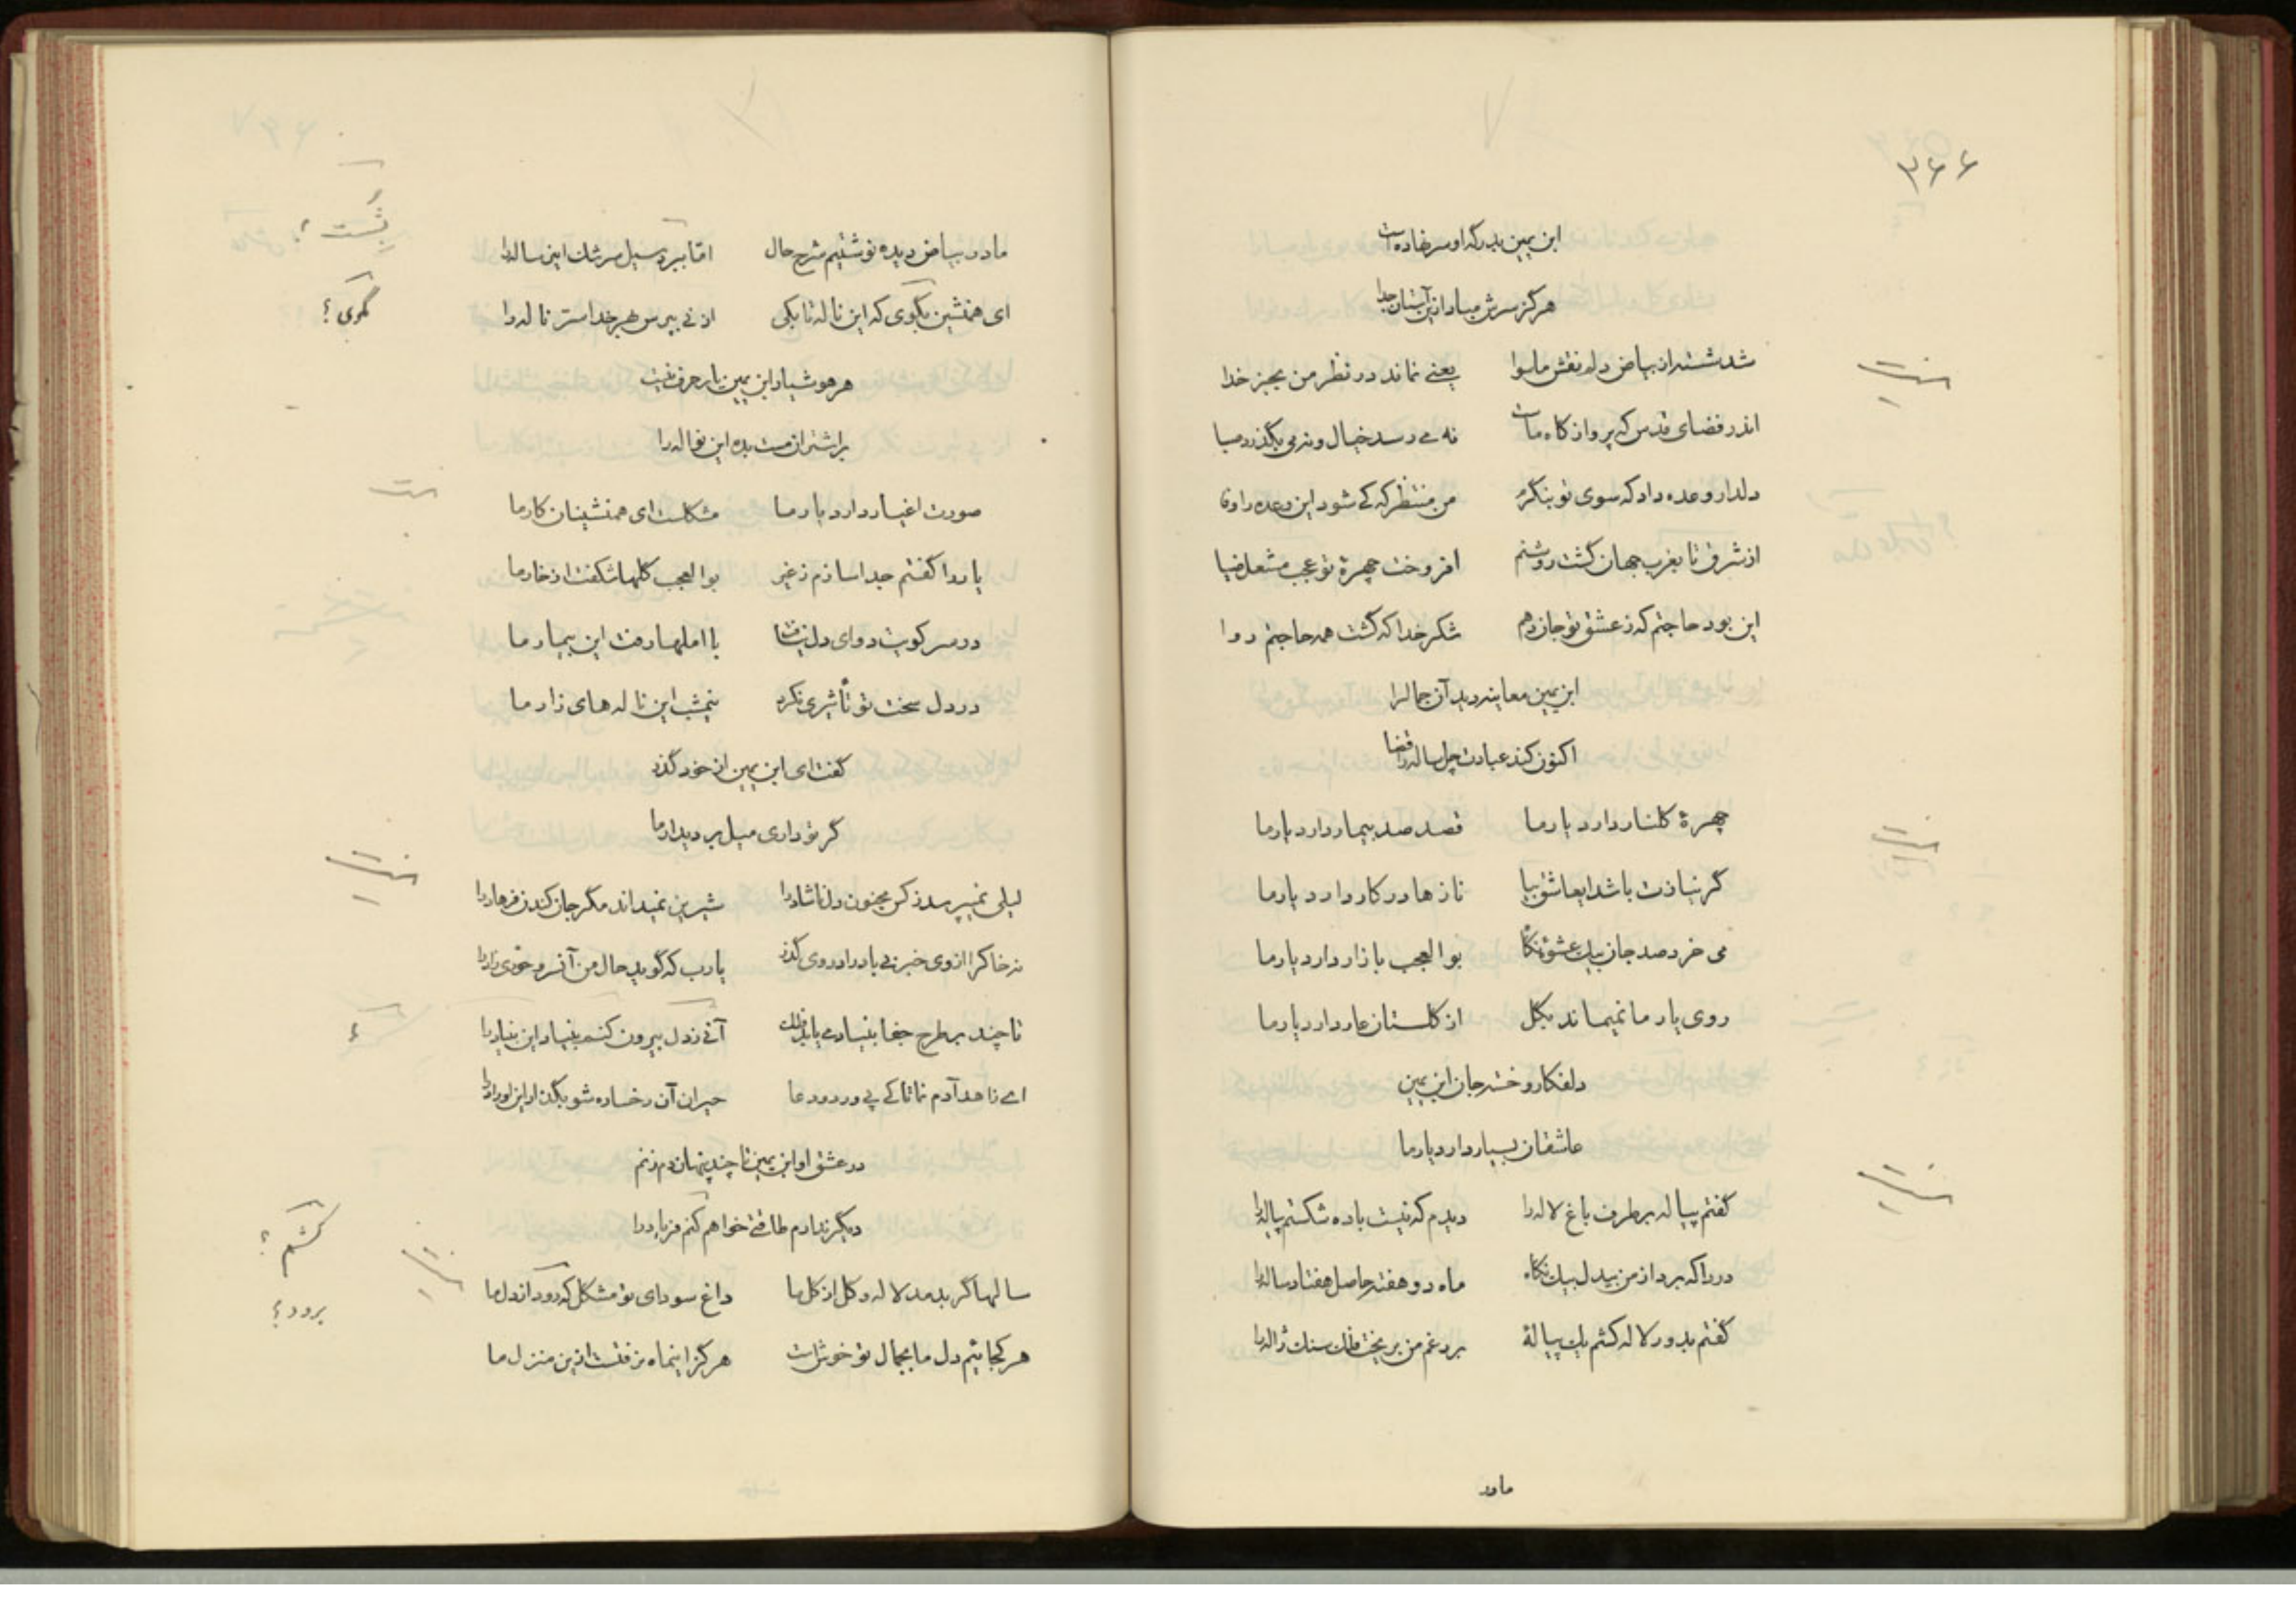 ۳۶۶
ابن یمین بدرگه او سر نهاده است
هرگز سرش مباد ازین آستان جدا
شد شسته از بیاض دلم نقش ماسوا یعنی نماند در نظر من بجز خدا
اندر فضای قدس که پرواز گاه ماست نه می رسد خیال و نه می بگذرد صبا
دلدار وعده داد که سوی تو بنگرم من منتظر که کی شود این وعده را وفا
از شرق تا بغرب جهان گشت روشنم افروخت چهرهٔ تو عجب مشعل ضیا
این بود حاجتم که ز عشق تو جان دهم شکر خدا که گشت همه حاجتم روا
ابن یمین معاینه دید آن جمال را
اکنون کند عبادت چل ساله را قضا
چهرهٔ گلنار دارد یار ما قصد صد بیمار دارد یار ما
گر نیازت باشد ایعاشق بیا نازها در کار دارد یار ما
می خرد صد جان بیک عشوه نگار بوالعجب بازار دارد یار ما
روی یار ما نمیماند بگل از گلستان عار دارد یار ما
دلفکار و خسته جان ابن یمین
عاشقان بسیار دارد یار ما
گفتم پیاله بر طرف باغ لاله را دیدم که نیست باده شکستم پیاله را
دردا که برد از من بیدل بیک نگاه ماه دو هفته حاصل هفتاد ساله را
گفتم بدور لاله کشم یک پیالهٔ بر رغم من بریخت فلک سنگ ژاله را
مادر
ما در بیاض دیده نوشتیم شرح حال اما ببرد سیل سرشک این رساله را
ای همنشین بگوی که این ناله تا بکی از نی بپرس بهر خدا سر ناله را
هر هوشیار ابن یمین یار حرف نیست
بر اشتران مست بده این نواله را
صورت اغیار دارد یار ما مشکلست ای همنشینان کار ما
یار را گفتم جدا سازم ز غیر بوالعجب گلها شکفت از خار ما
در سر کویت دوای دل نیافت با املها رفت این بیمار ما
در دل سخت تو تأثیری نکرد نیمشب این ناله های زار ما
گفت ای ابن یمین از خود گذر
گر تو داری میل بر دیدار ما
لیلی نمیپرسد ز کس مجنون دل ناشاد را شیرین نمیداند مگر جان کندن فرهاد را
نه خاک را از وی خبر نی باد را در وی گذر یارب که گوید حال من آنسرو حوری زاد را
تا چند بر طرح جفا بنیاد می یابد فلک آهی ز دل بیرون کنم بنیاد این بنیاد را
ای زاهد آدم نما تا کی پی ورد و دعا حیران آن رخساره شو بگذار این اوراد را
در عشق او ابن یمین تا چند پنهان دم زنم
دیگر ندارم طاقتی خواهم کنم فریاد را
سالها گر بدمد لاله و گل از گل ما داغ سودای تو مشکل که رود از دل ما
هر کجائیم دل ما بجمال تو خوش است هرگز اینماه نرفتست ازین منزل ما
بشست ؟
گوی ؟
؟
کشم ؟
برود ؟